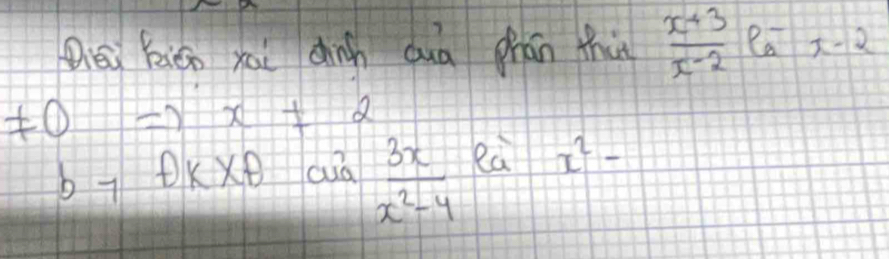 Điều kiện xác định của phân thức \frac{x+3}{x-2} là x-2
≠0 => x ≠ 2
b, ĐKXĐ của \frac{3x}{x^2-4} là x^2-